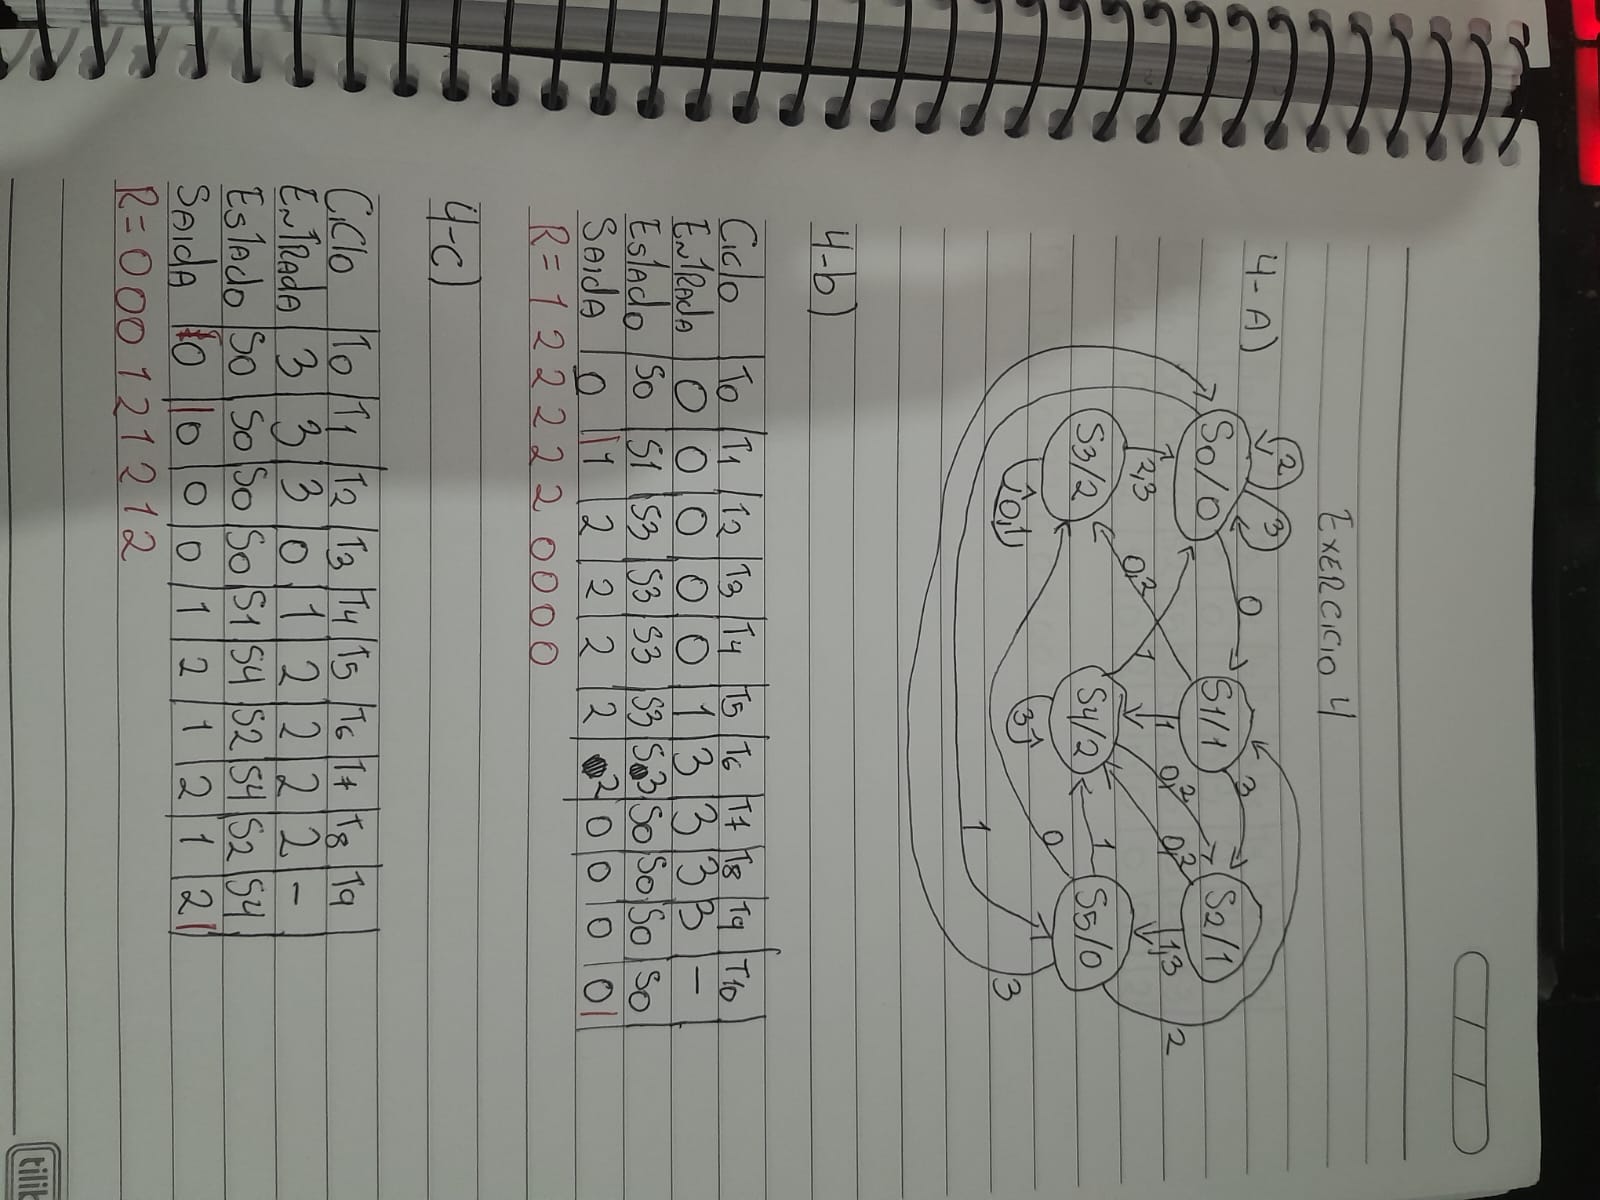 EXERCICIO 4
4-A)
2 3
S0/0 0 S1/1 3 S2/1
2,3 0,2 1 1 0,2 0,2 1,3
S3/2 S4/2 1 S5/0
0,1 3 0 2
1
3
4-b)
Ciclo T0 T1 T2 T3 T4 T5 T6 T7 T8 T9 T10
EnTRAdA 0 0 0 0 0 1 3 3 3 3 -
EsTAdo S0 S1 S3 S3 S3 S3 S3 S0 S0 S0 S0
SAIdA 0 1 2 2 2 2 2 0 0 0 0
R=1222220000
4-c)
CiClo T0 T1 T2 T3 T4 T5 T6 T7 T8 T9
EnTRAdA 3 3 3 0 1 2 2 2 2 -
EsTAdo S0 S0 S0 S0 S1 S4 S2 S4 S2 S4
SAIdA 0 0 0 0 1 2 1 2 1 2
R=000121212